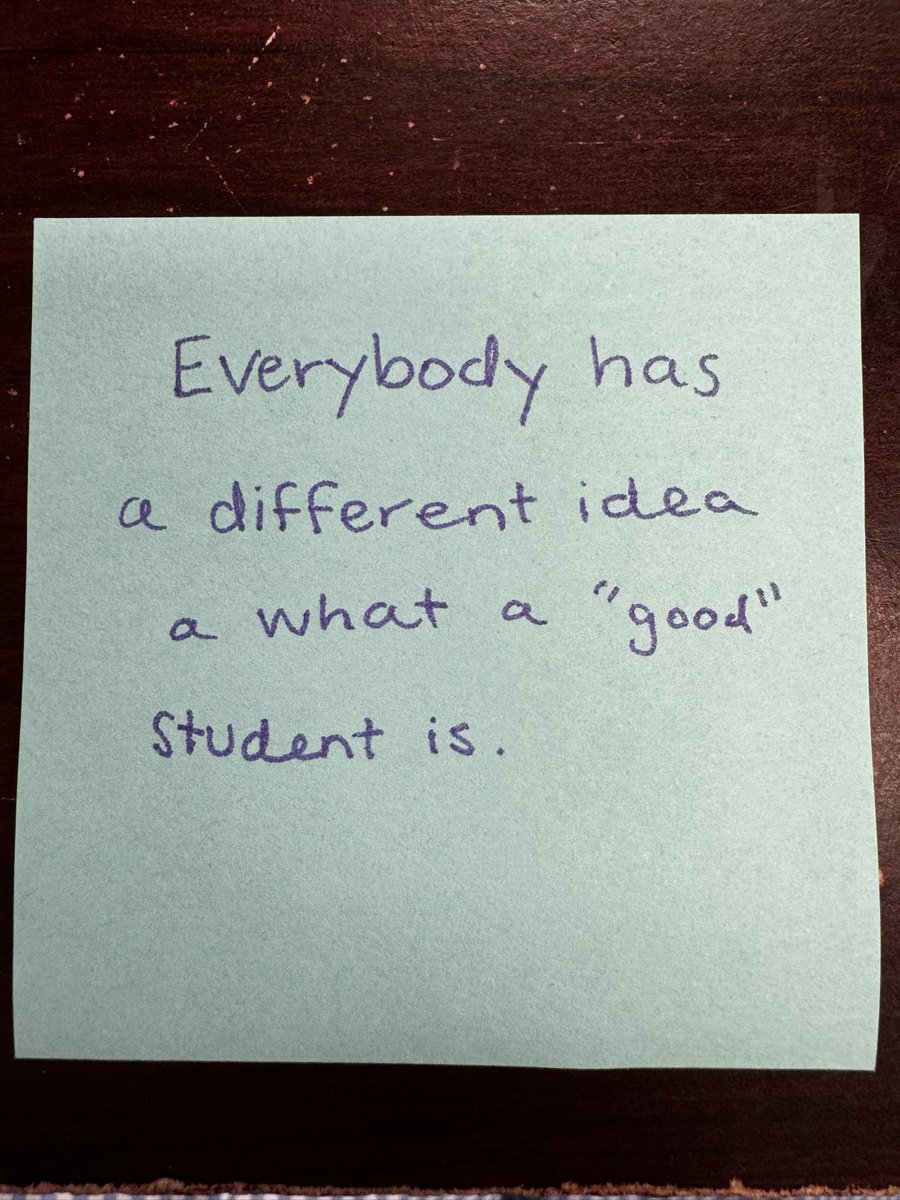 Everybody has
a different idea
a what a "good"
student is.